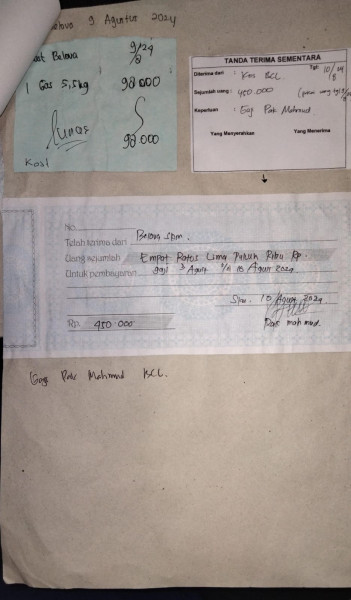 9 Agustus 2024
Belova
9/24
8
1 Gas 5,5kg
98 000
Lunas
98 000
TANDA TERIMA SEMENTARA
Tgl: 10/24
8
Diterima dari : Kas BCL.
Sejumlah uang : 450.000
Keperluan : Gaji Pak Mahmud
Yang Menyerahkan
Yang Menerima
No.
Telah terima dari Belova Spm.
Uang sejumlah Empat Ratus Lima Puluh Ribu Rp.
Untuk pembayaran gaji 3 Agust s/d 10 Agust 2024
10 Agust 2024
Rp. 450.000
Pak mahmud.
Gaji Pak Mahmud BCL.